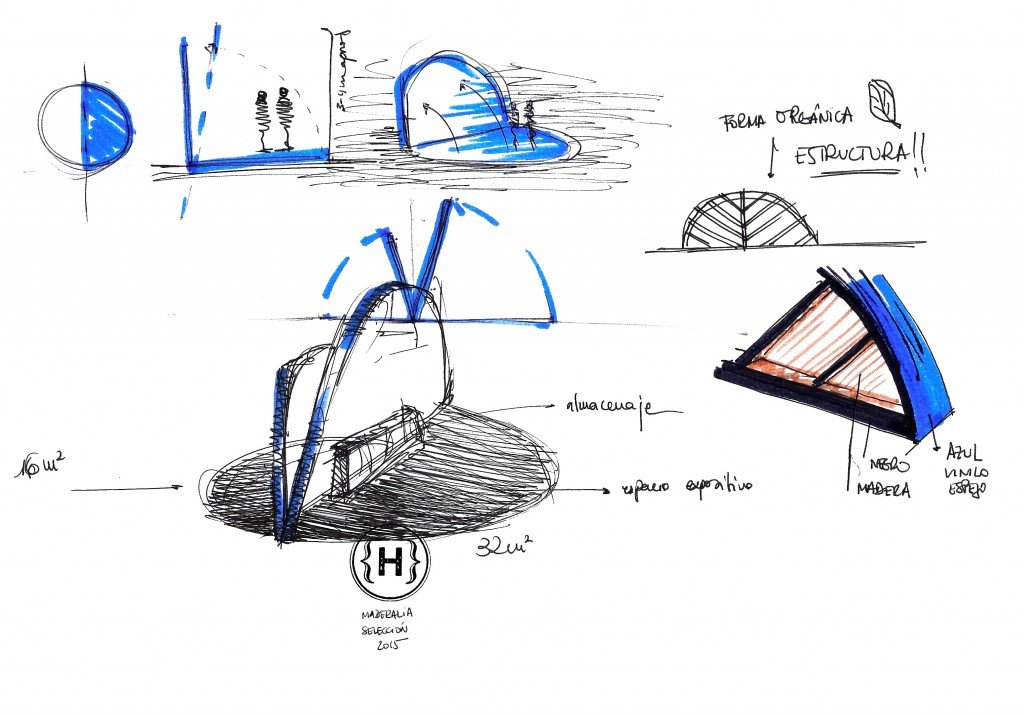 FORMA ORGÂNICA
ESTRUCTURA!!
almacenaje
16 m²
espacio expositivo
NEGRO
MADERA
AZUL
VINILO
ESPEJO
32 m²
{H}
MADERALIA
SELECCIÓN
2015